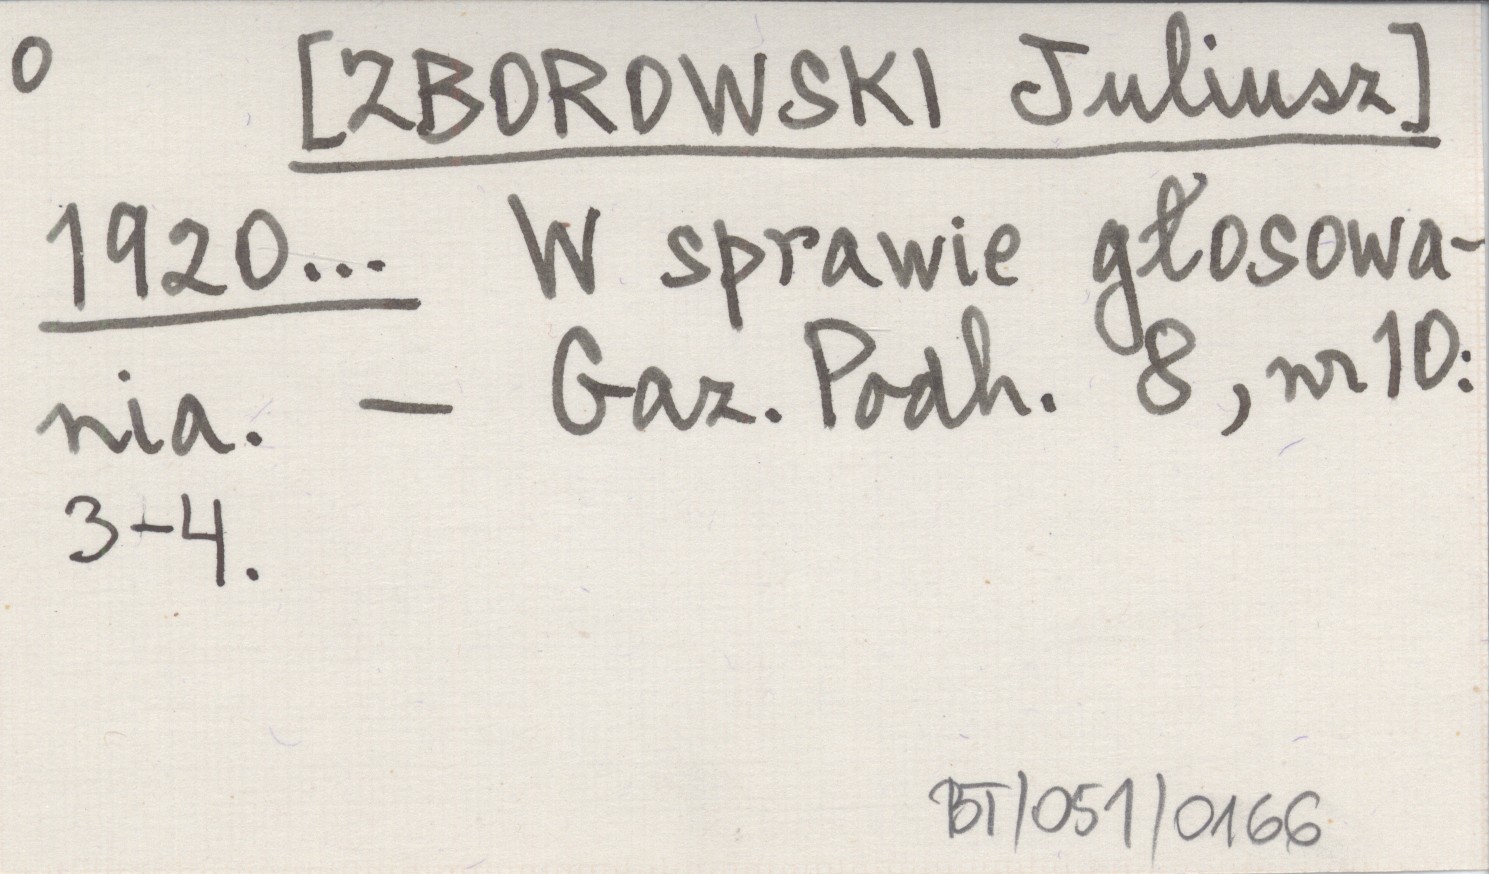 o [ZBOROWSKI Juliusz]
1920... W sprawie głosowa-
nia. — Gaz. Podh. 8, nr 10:
3-4.
BT/051/0166